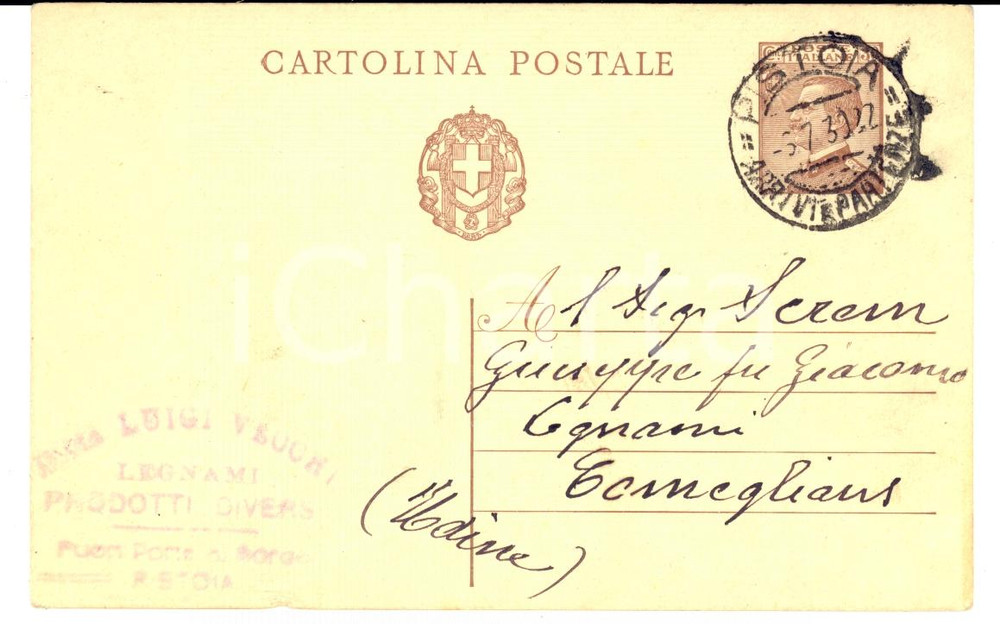 CARTOLINA POSTALE
POSTE
ITALIANE
PISTOIA
-5 7 30 22
ARRIVI E PARTENZE
Al Sig. Serem
Giuseppe fu Giacomo
Legnami
Comeglians
(Udine)
LUIGI VECCHI
LEGNAMI
PRODOTTI DIVERSI
Fuori Porta al Borgo
PISTOIA
iCharta